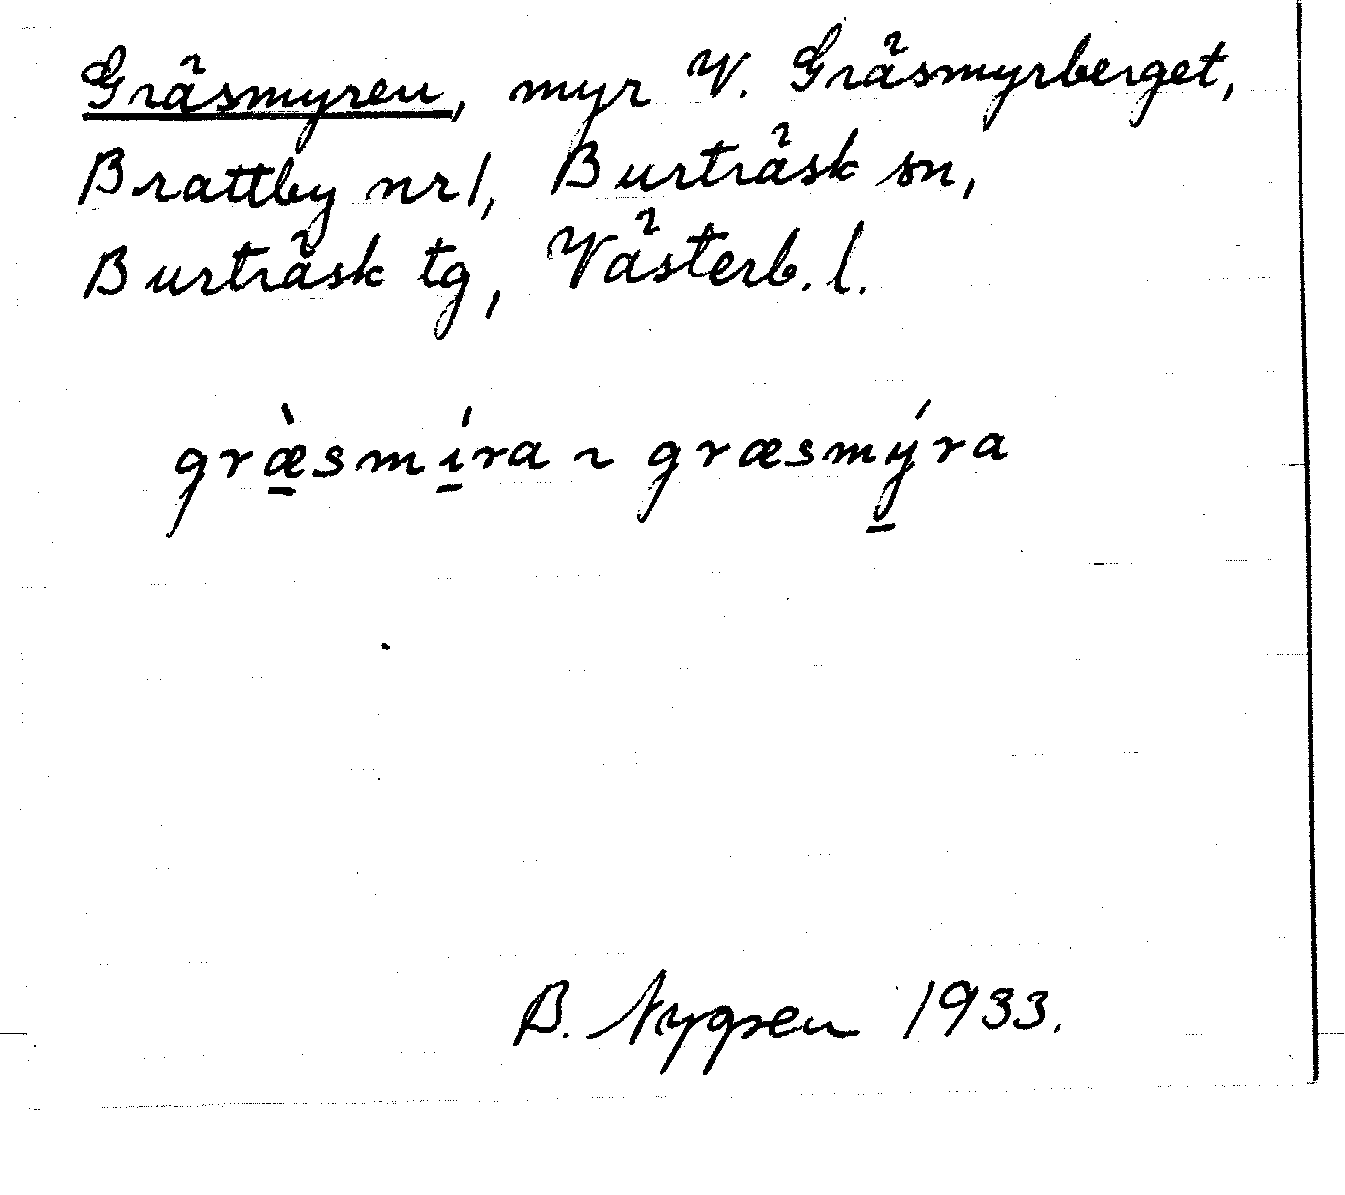 Gräsmyren, myr V. Gräsmyrberget,
Brattby nr 1, Burträsk sn,
Burträsk tg, Västerb. l.
græ̱̀smí̱ra ~ græsmý̱ra
B. Nygren 1933.